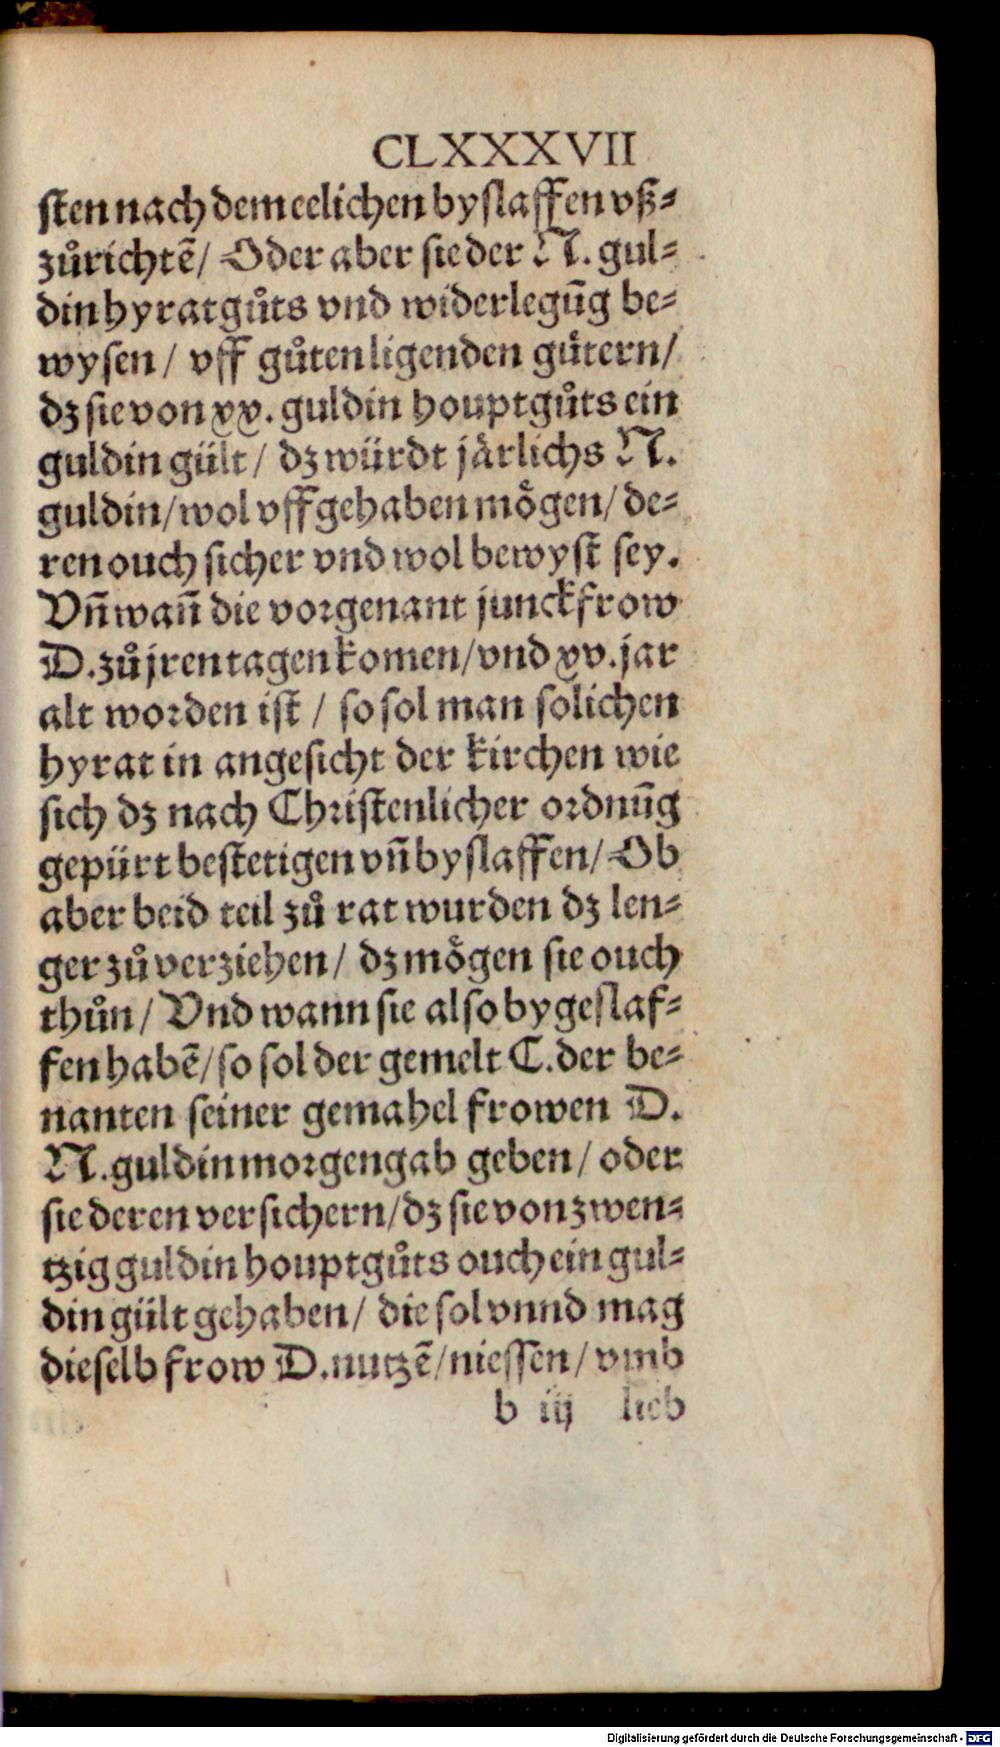 CLXXXVII
ſten nach dem eelichen byſlaffen vß⸗
zůrichtē/ Oder aber sie der N. gul⸗
din hyratgůts vnd widerlegūg be⸗
wysen/ vff gůten ligenden gůtern/
dz sie von xx. guldin houptgůts ein
guldin gült/ dz würdt jårlichs N.
guldin/ wol vffgehaben mögen/ de⸗
ren ouch sicher vnd wol bewyſt sey.
Vñ wañ die vorgenant junckfrow
D. zů jren tagen komen/ vnd xv. jar
alt worden iſt / ſo ſol man ſolichen
hyrat in angeſicht der kirchen wie
ſich dz nach Chriſtenlicher ordnūg
gepürt beſtetigen vñ byſlaffen/ Ob
aber beid teil zů rat wurden dz len⸗
ger zů verziehen/ dz mögen ſie ouch
thůn/ Vnd wann ſie alſo bygeſlaf⸗
fen habē/ ſo ſol der gemelt C. der be⸗
nanten ſeiner gemahel frowen D.
N. guldin morgengab geben/ oder
ſie deren verſichern/ dz ſie von zwen⸗
tzig guldin houptgůts ouch ein gul⸗
din gült gehaben/ die ſol vnnd mag
dieſelb frow D. nutzē/ nieſſen/ vmb
b iij lieb
Digitalisierung gefördert durch die Deutsche Forschungsgemeinschaft - DFG